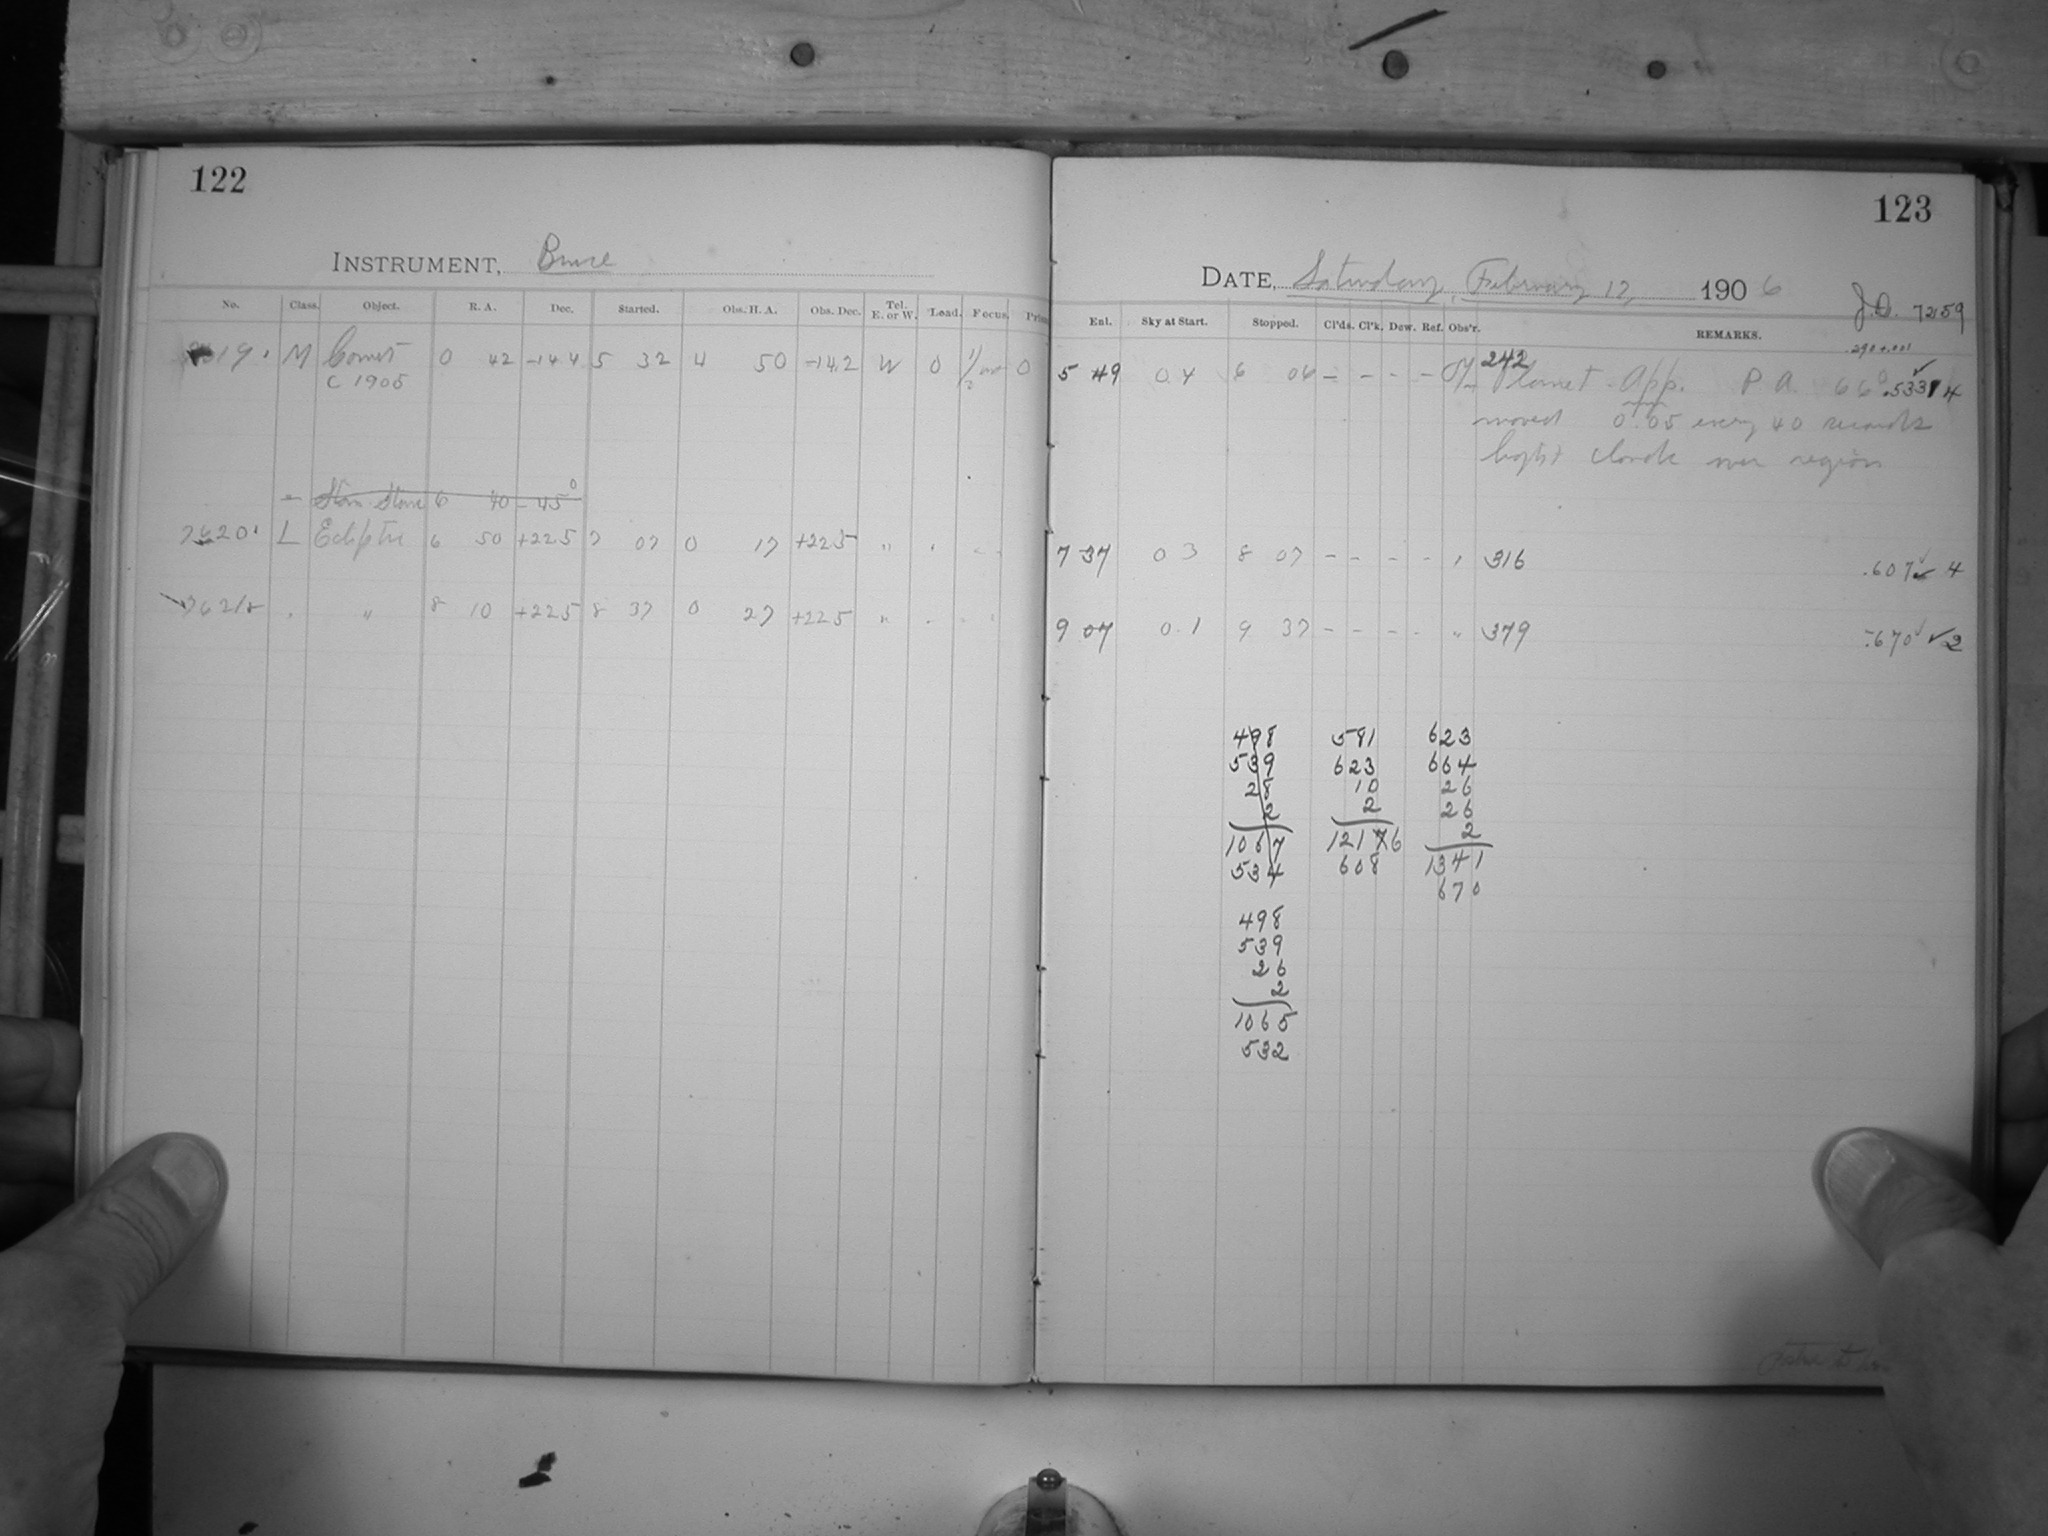 122
INSTRUMENT, Bruce
No. Class. Object. R. A. Dec. Started. Obs. H. A. Obs. Dec. Tel. E. or W. Load. Focus.
M Comet 0 42 -14.4 5 32 4 50 -14.2 W 0 0
C 1905
6 40 -45°
7620 L Ecliptic 6 50 +22.5 7 07 0 17 +22.5 "
7621 " 8 10 +22.5 8 37 0 27 +22.5 "
123
DATE, Saturday, February 17, 1906
J.D. 7259
Ent. Sky at Start. Stopped. Cl'ds. Cl'k. Dew. Ref. Obs'r. REMARKS.
.290+.001
5 49 0.4 6 06 - - - - 242
Planet App. P A. 66° .533 4
moved 0.05 every 40 seconds
light clouds over region
7 37 0 3 8 07 - - - - 316 .607 ✓ 4
9 07 0.1 9 37 - - - - " 379 .670 ✓ 2
498 581 623
539 623 664
28 10 26
2 2 26
1067 1216 2
534 608 1341
670
498
539
26
2
1065
532